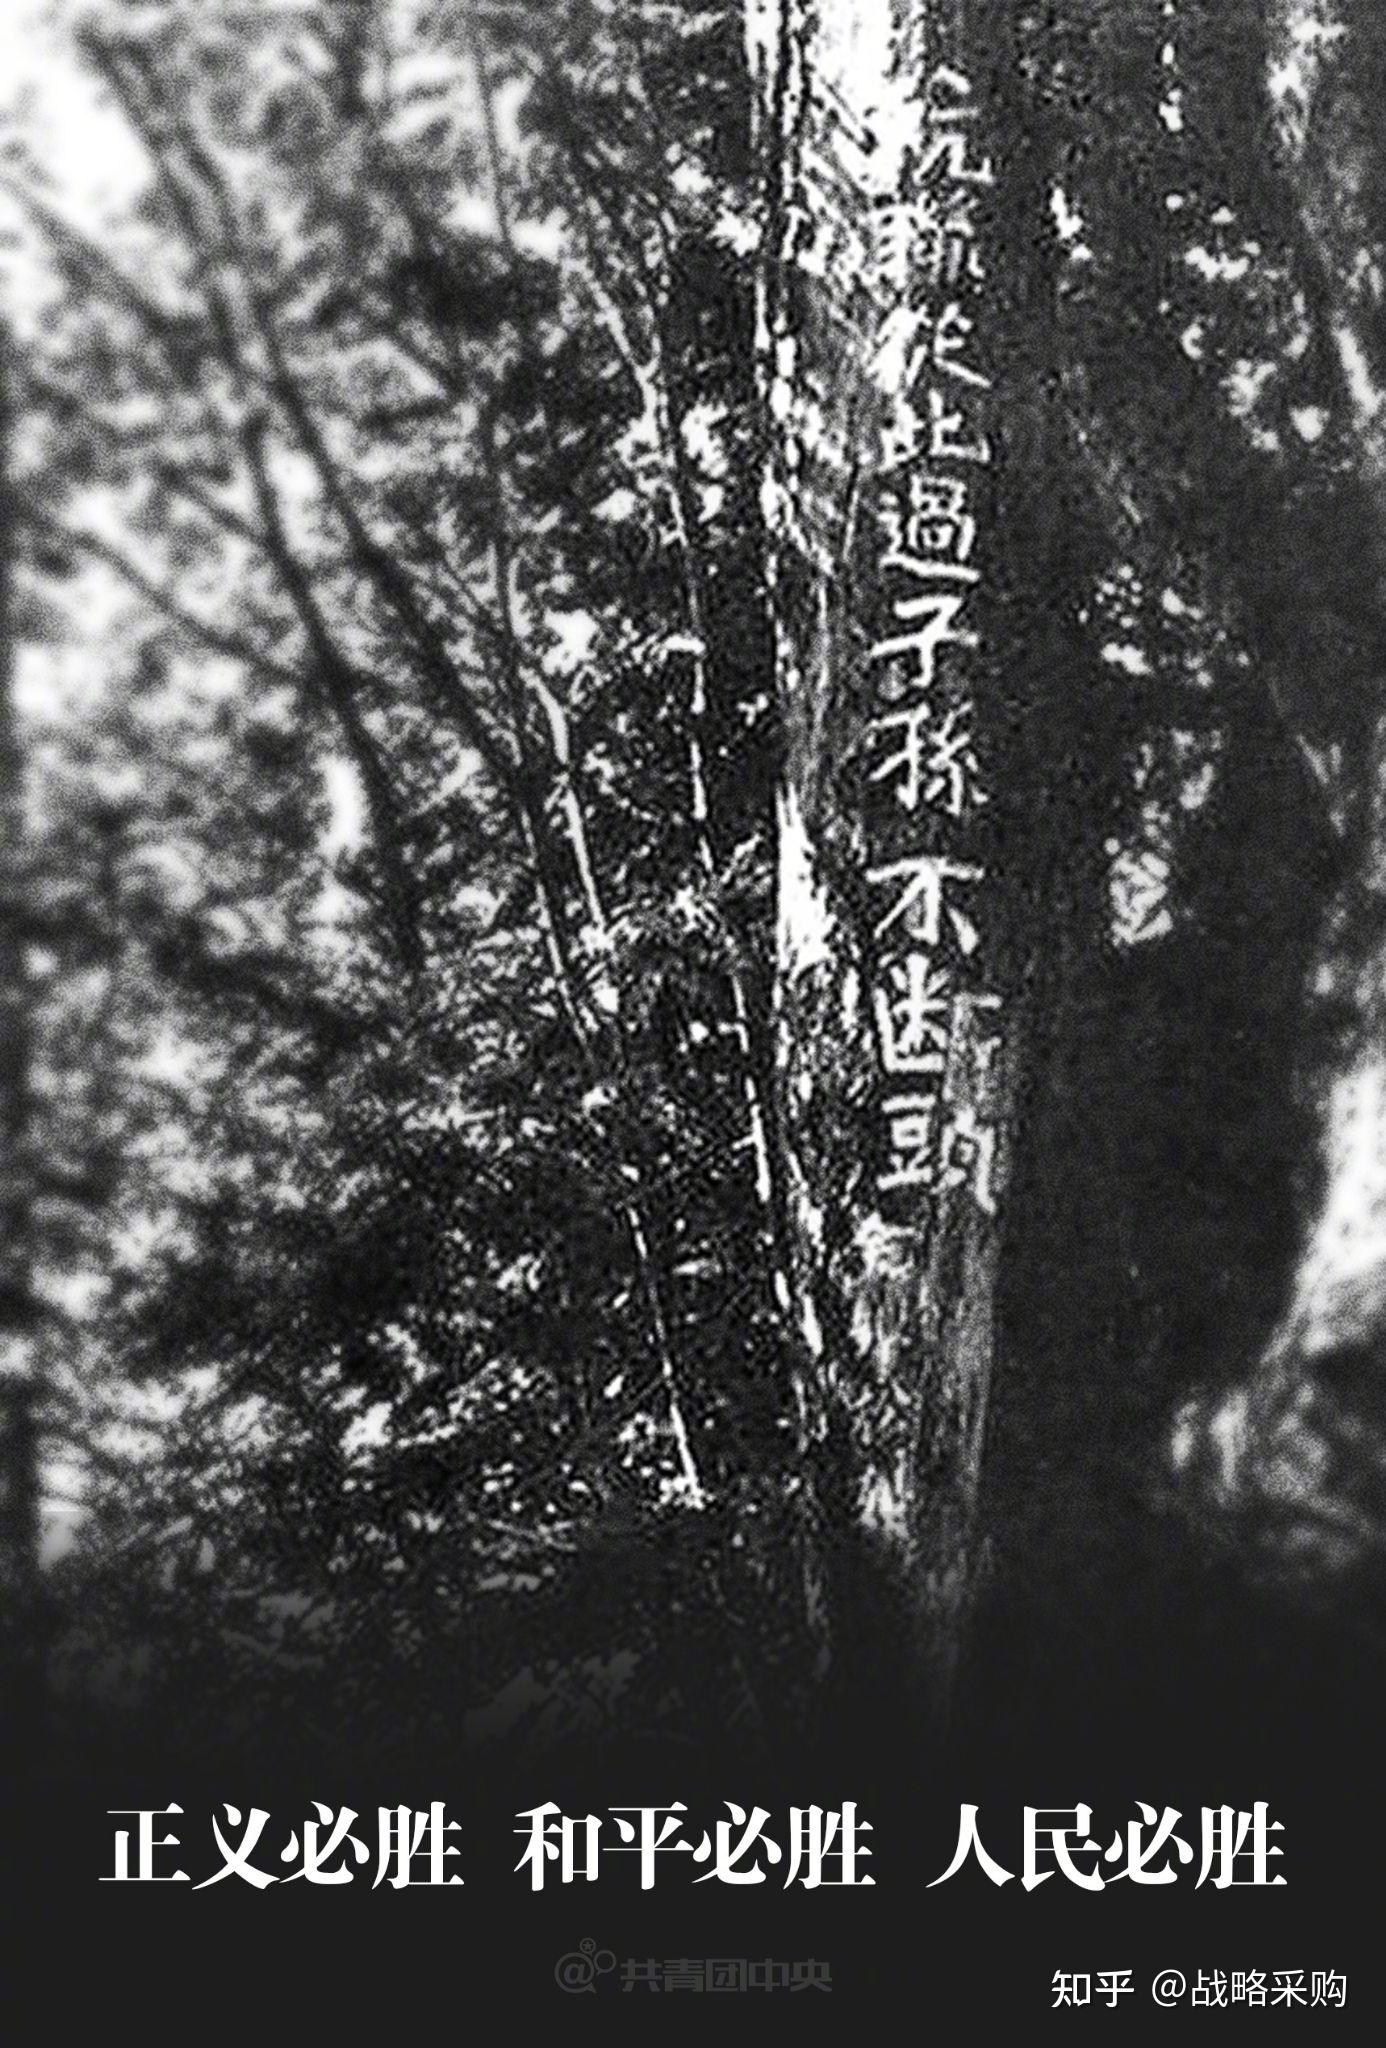 抗聯從此過子孫不断頭
正义必胜 和平必胜 人民必胜
@共青团中央
知乎 @战略采购